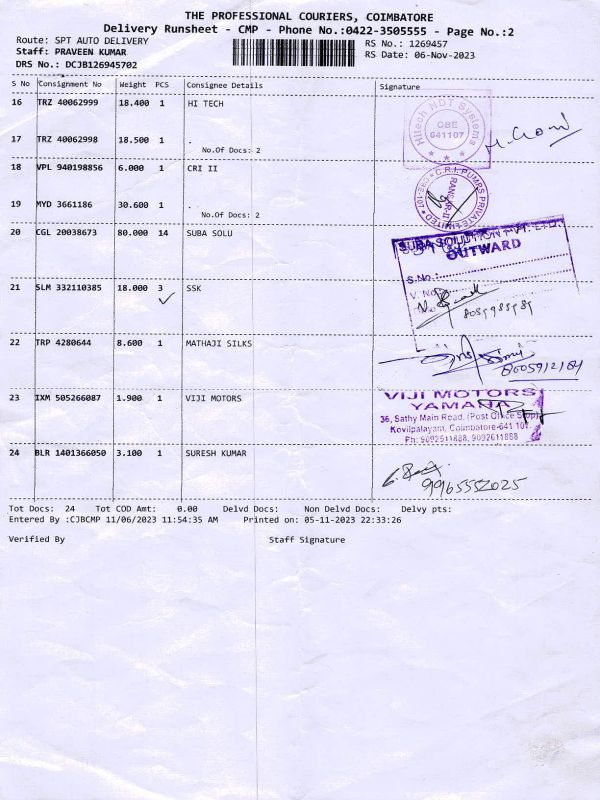 THE PROFESSIONAL COURIERS, COIMBATORE
Delivery Runsheet - CMP - Phone No.:0422-3505555 - Page No.:2
Route: SPT AUTO DELIVERY
RS No.: 1269457
Staff: PRAVEEN KUMAR
RS Date: 06-Nov-2023
DRS No.: DCJB126945702
S No Consignment No Weight PCS Consignee Details Signature
16 TRZ 40062999 18.400 1 HI TECH
Hitech NDT Systems
CBE
641107
17 TRZ 40062998 18.500 1 .
No.Of Docs: 2
18 VPL 940198856 6.000 1 CRI II
C.R.I. PUMPS PRIVATE LIMITED
19 MYD 3661186 30.600 1 .
No.Of Docs: 2
20 CGL 20038673 80.000 14 SUBA SOLU
SUBA SOLUTION PVT. LTD.
OUTWARD
S.No.:
V. No.
21 SLM 332110385 18.000 3 SSK
22 TRP 4280644 8.600 1 MATHAJI SILKS
23 IXM 505266087 1.900 1 VIJI MOTORS
VIJI MOTORS
YAMAHA
36, Sathy Main Road, (Post Office Stop)
Kovilpalayam, Coimbatore-641 107.
Ph: 9092511888, 9092611888
24 BLR 1401366050 3.100 1 SURESH KUMAR
9965552025
Tot Docs: 24 Tot COD Amt: 0.00 Delvd Docs: Non Delvd Docs: Delvy pts:
Entered By :CJBCMP 11/06/2023 11:54:35 AM Printed on: 05-11-2023 22:33:26
Verified By Staff Signature